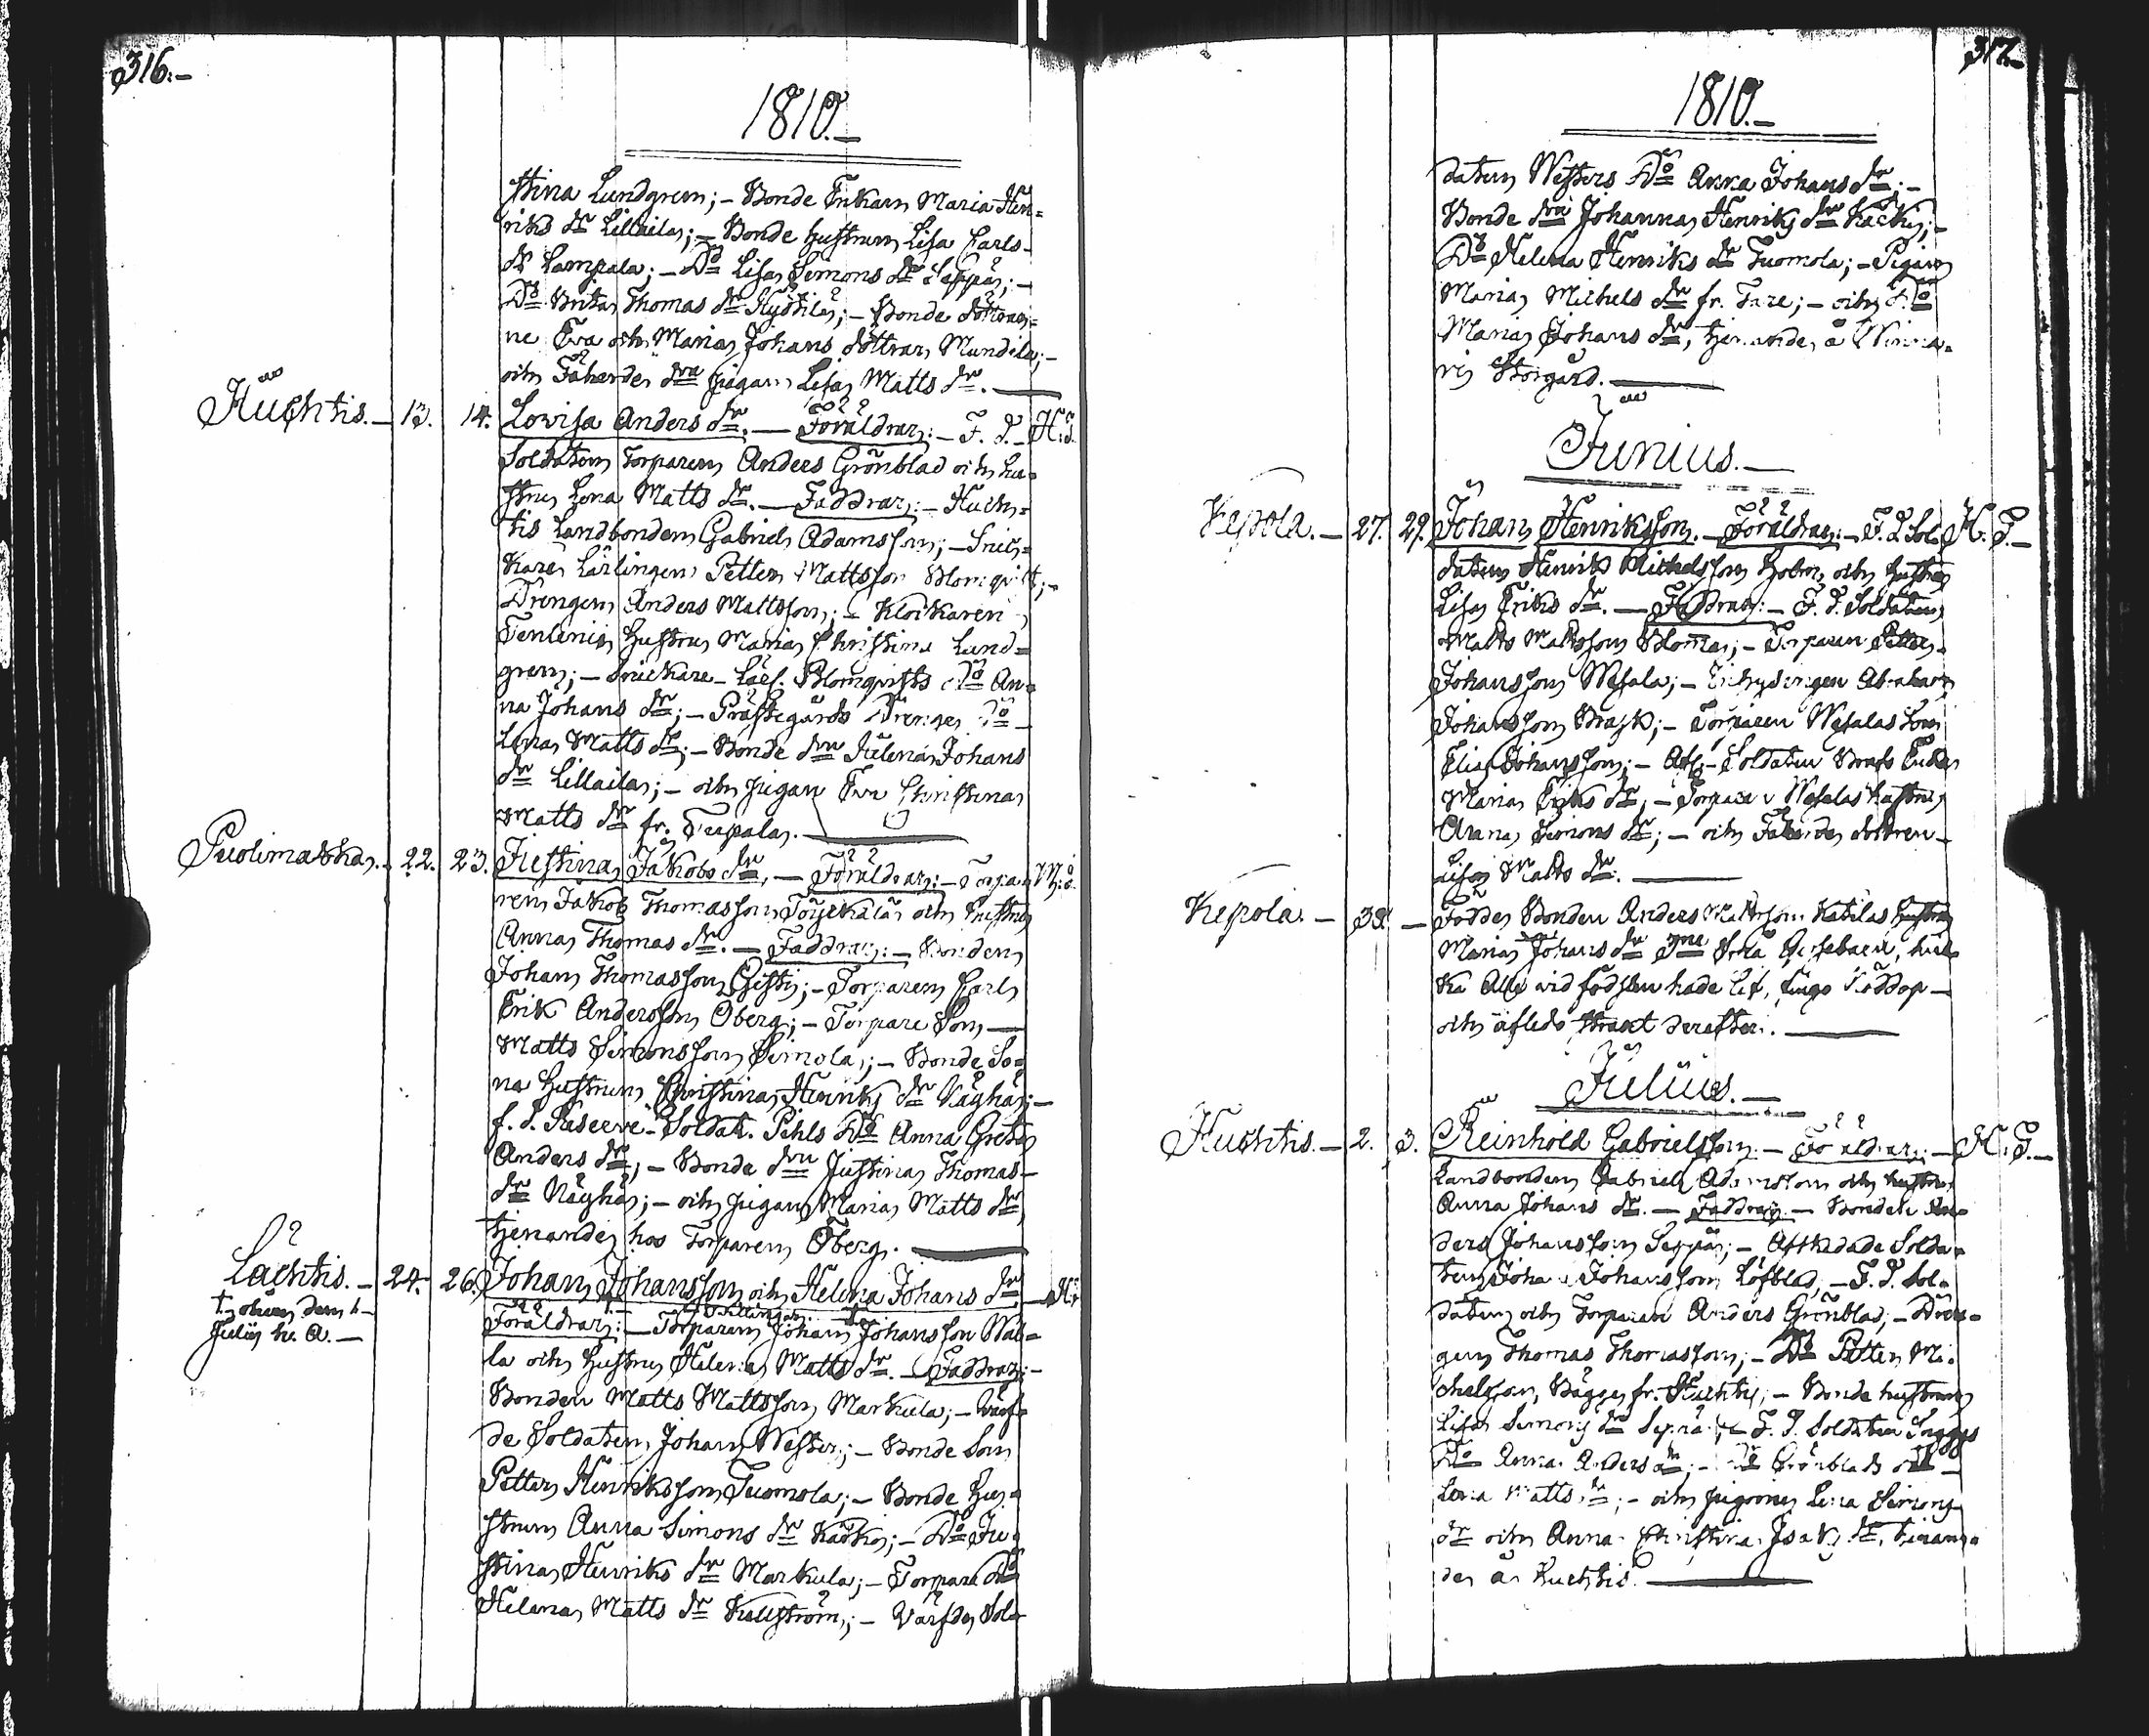 316.-
1810.-
stina Lundgren; - Bonde Enkan Maria Hen=
riks dr Lillaila; - Bonde hustrun Lisa Carls-
dr Lampala; - Do Lisa Simons dr Seppä; -
Do Brita Thomas dr Kyötilä; - Bonde döttrar=
ne Eva och Maria Johans döttrar Mundila; -
och Fäherde dra pigan Lisa Matts dr.
Huchtis. - 13. 14. Lovisa Anders dr. - Föräldrar: - F. d. H:d.
Soldaten Torparen Anders Grönblad och hu=
stru Lena Matts dr. - Faddrar: - Huch=
tis Landbonden Gabriel Adamsson; - Snic=
kare Lärlingen Petter Mattsson Blomqvist; -
Drengen Anders Mattsson; - Klockaren
Tenlenii hustru Maria Christina Lund=
gren; - Snickare - Lärl. Blomqvists Do An=
na Johans dr; - Prästegårds Drenges Do -
Lena Matts dr; - Bonde dra Helena Johans
dr Lillaila; - och pigan Eva Christina
Matts dr fr. Turpala.
Puolimatka. 22. 23. Justina Jakobs dr, - Föräldrar: - Torpa= M:d.
ren Jakob Thomasson och hustru
Anna Thomas dr. - Faddrar: - Bonden
Johan Thomasson; - Torparen Carl
Erik Andersson Öberg; - Torpare Son -
Matts Simonsson Simola; - Bonde So=
na hustrun Christina Henriks dr Näyhä; -
f. d. Reserve - Soldat. Pihls Do Anna Greta
Anders dr; - Bonde dra Justina Thomas-
dr Näyhä; - och pigan Maria Matts dr
tjenande hos Torparen Öberg.
Lächtis. - 24. 26. Johan Johansson och Helena Johans dr - H:
Tvillingar
Julii h. a. -
Föräldrar: - Torparen Johan Johansson Wai=
la och hustru Helena Matts dr. - Faddrar: -
Bonden Matts Mattsson Markula; - Värf=
de Soldaten Johan Wester; - Bonde Son
Petter Henriksson Tuomola; - Bonde Hus=
trun Anna Simons dr Kackis; - Do Ju=
stina Henriks dr Markula; - Torpare Do
Helena Matts dr Kullström; - Värfde Sol=
317.-
1810.-
daten Westers Do Anna Johans dr; -
Bonde dra Johanna Henriks dr Kackis; -
Do Helena Henriks dr Tuomola; - Pigan
Maria Michels dr fr. Ture; - och Do
Maria Johans dr, tjenande å Winna=
ris Storgård.
Junius. -
Kepola. - 27. 29. Johan Henriksson. - Föräldrar: - F. d. Sol= H. T. -
daten Henrik Michelsson Holm och hustru
Lisa Eriks dr. - Faddrar: - F. d. Soldaten
Matts Mattsson Blomas; - Torparen Petter
Johansson Wesala; - Inhysingen Abraham
Johansson Brask; - Torparen Wesalas Son
Elias Johansson; - Afl. Soldaten Enka
Maria Eriks dr, - Torpare Wesalas hustru
Anna Simons dr; - och Fäherde dottren -
Lisa Matts dr.
Kepola. - 30. - Födde Bonden Anders Mattsson Katilas hustru
Maria Johans dr Tre Små Qvinsebarn, hvil=
ka Alla vid födslen hade lif, fingo Nöddop -
och afledo strant derefter.
Julius. -
Huchtis. - 2. 3. Reinhold Gabrielsson. - Föräldrar: - H. T. -
Landbonden Gabriel Adamsson och hustru
Anna Johans dr. - Faddrar: - Bonden An=
ders Johansson Seppä; - Afskedade Solda=
ten Johan Johansson Löfblad; - F. d. Sol=
daten och Torparen Anders Grönblad; - Dren=
gen Thomas Thomasson; - Do Petter Mi=
chelsson, Bägge fr. Huchtis; - Bonde hustrun
Lisa Simons dr Seppä; - F. d. Soldaten
Do Anna Anders dr; - Do Grönblads
Lena Matts dr; - och pigorna Lena Simons
dr och Anna Christina Isaks dr, tjenan=
de å Huchtis.